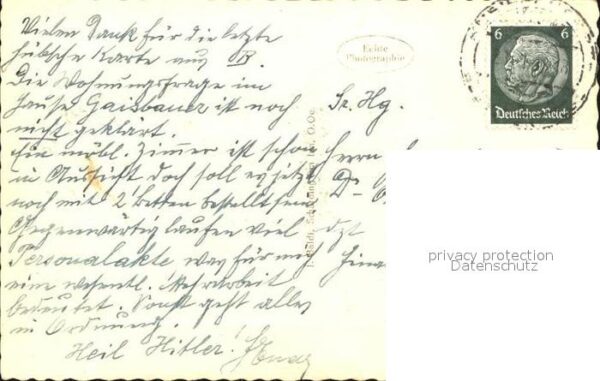 Vielen Dank für die letzte
hübsche Karte aus B.
Die Wohnungsfrage im
Hause Gaisbauer ist noch
nicht geklärt.
Ein möbl. Zimmer ist schon
in Aussicht doch soll es jetzt
noch mit 2 Betten bestellt sein
Gegenwärtig laufen viel
Personalakte was für mich
eine wesentl. Mehrarbeit
bedeutet. Sonst geht alles
in Ordnung.
Heil Hitler!
Echte
Photographie
Sr. Hg.
Herrn
Dr.
dzt
6 6
Deutsches Reich
privacy protection
Datenschutz